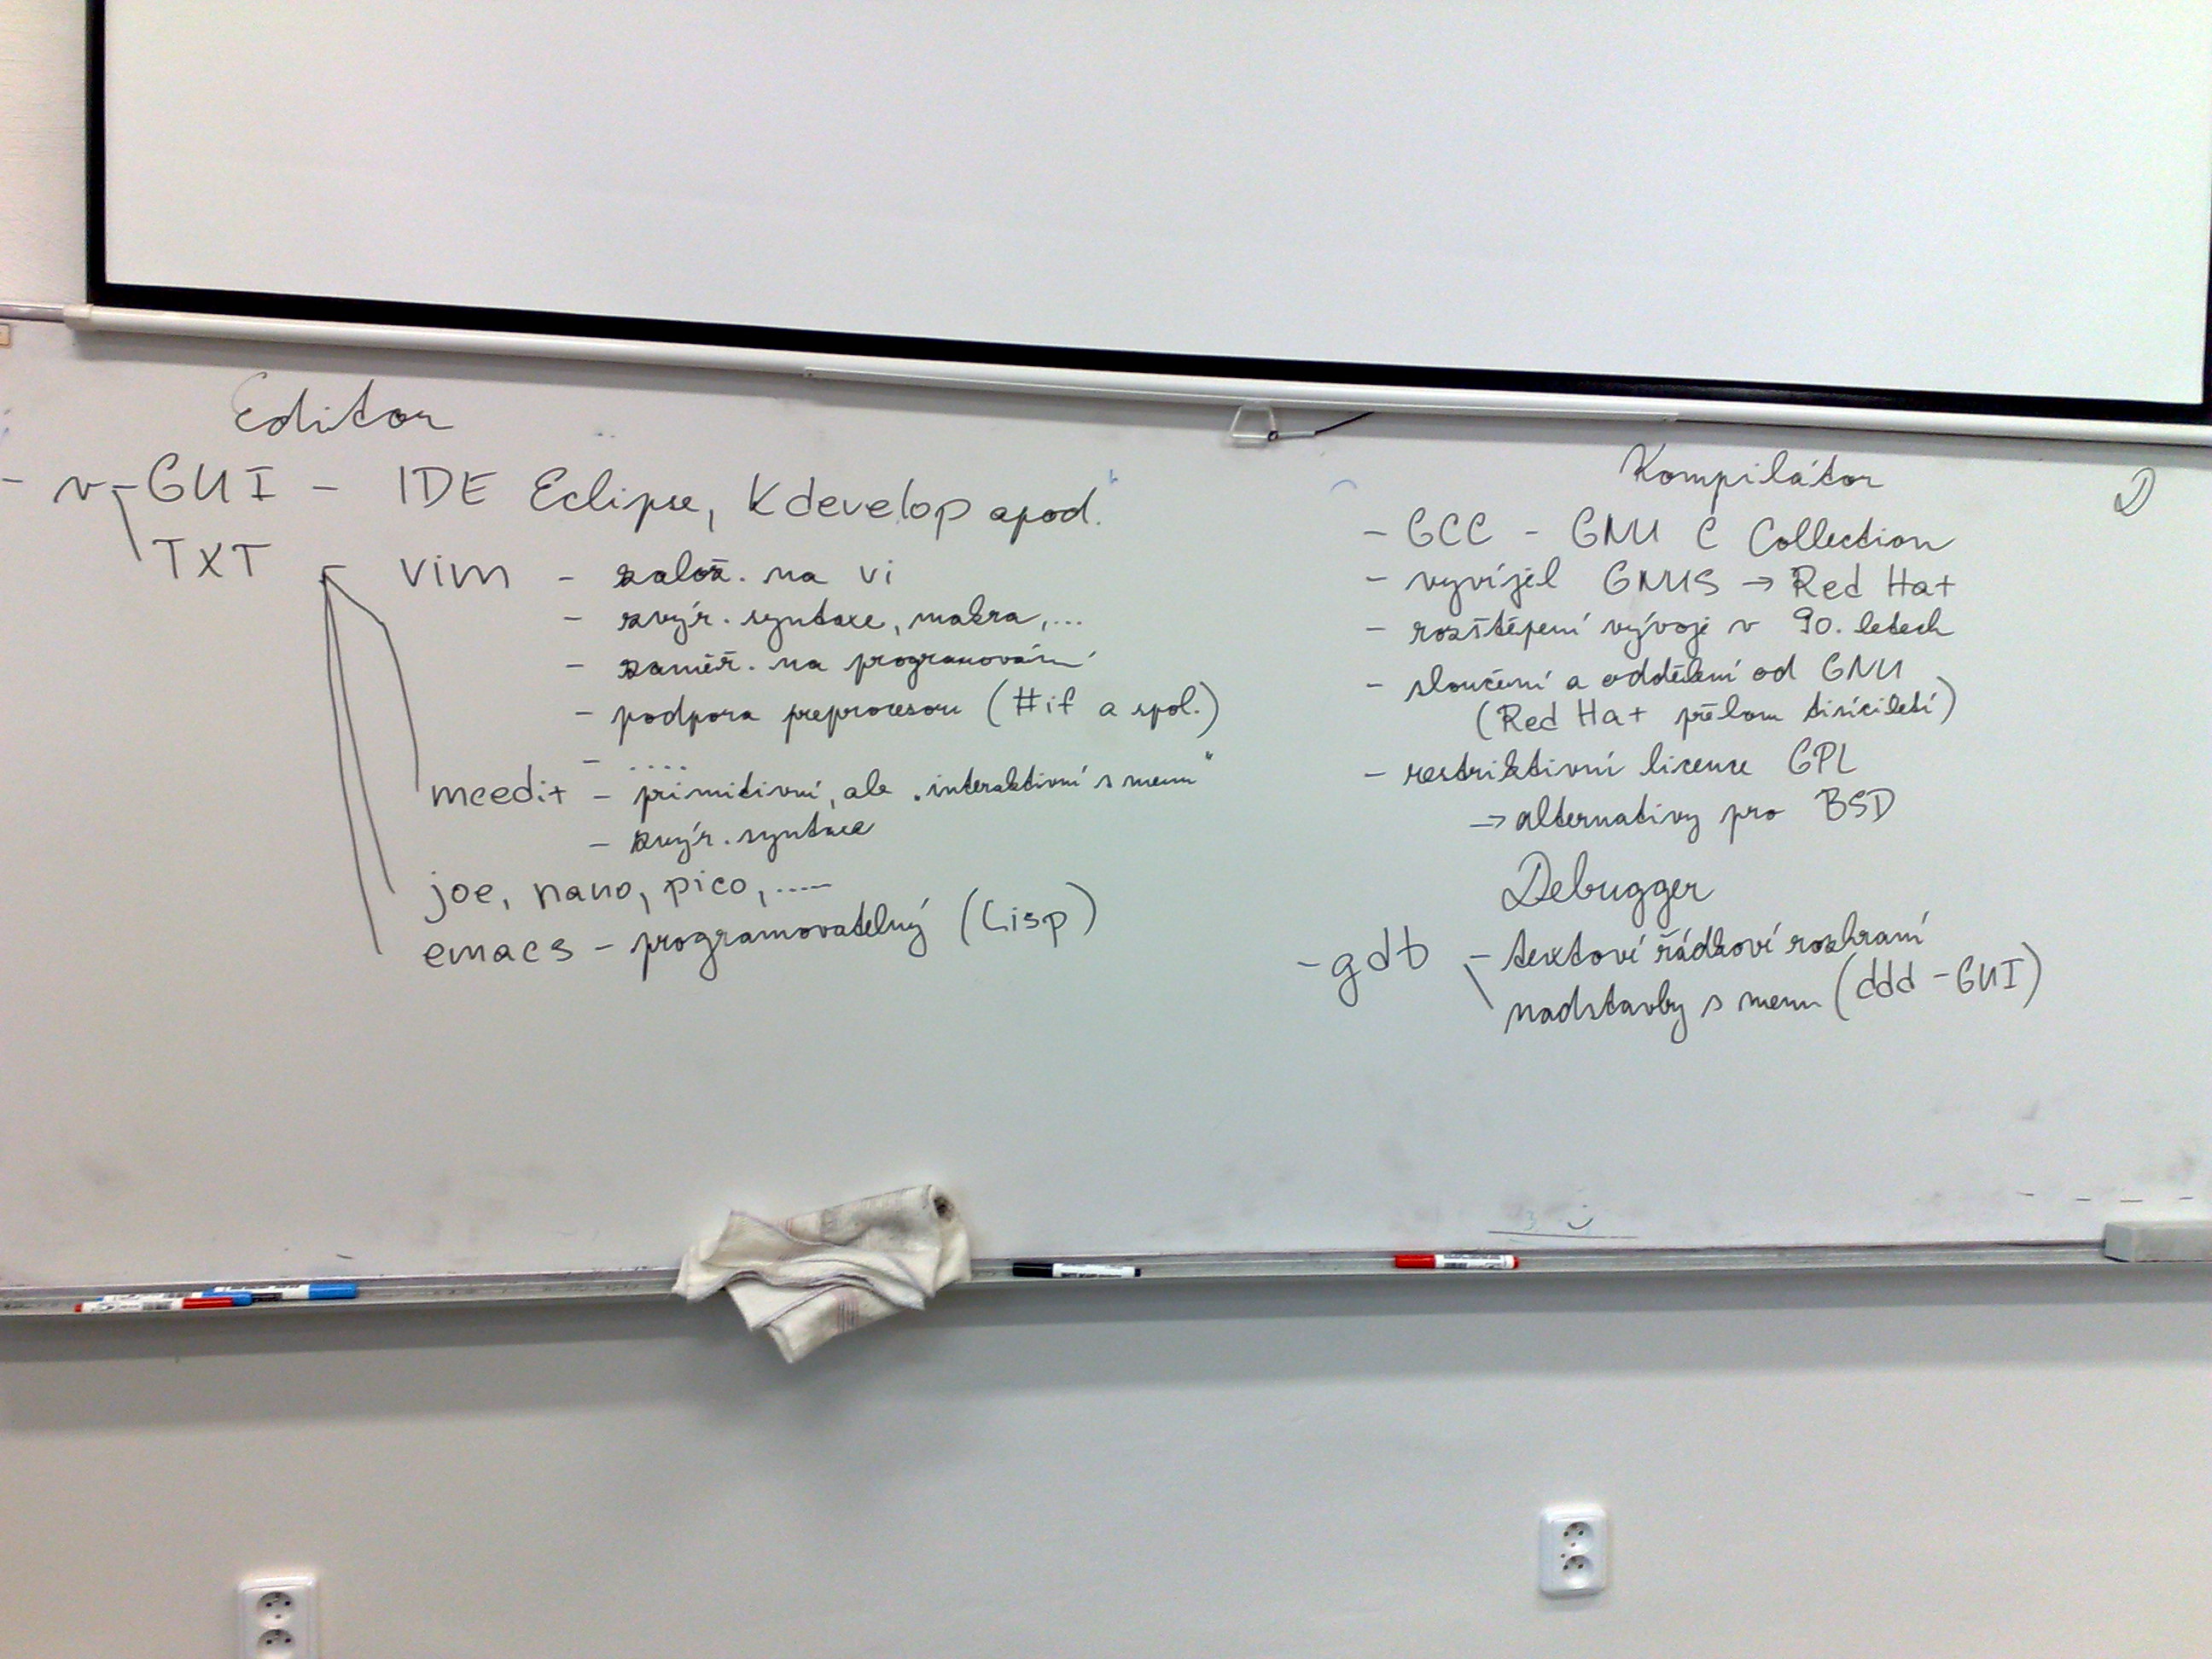 Editor
- v - GUI - IDE Eclipse, Kdevelop apod.
TXT - vim - založ. na vi
- zvýr. syntaxe, makra,...
- zaměř. na programování
- podpora preprocesoru (#if a spol.)
- ....
mcedit - primitivní, ale "interaktivní s menu"
- zvýr. syntaxe
joe, nano, pico, .....
emacs - programovatelný (Lisp)
Kompilátor
- GCC - GNU C Collection
- vyvíjel GNUS → Red Hat
- rozštěpení vývoje v 90. letech
- sloučení a oddělení od GNU
(Red Hat přelom tisíciletí)
- restriktivní licence GPL
→ alternativy pro BSD
Debugger
- gdb - textové řádkové rozhraní
nadstavby s menu (ddd - GUI)
D